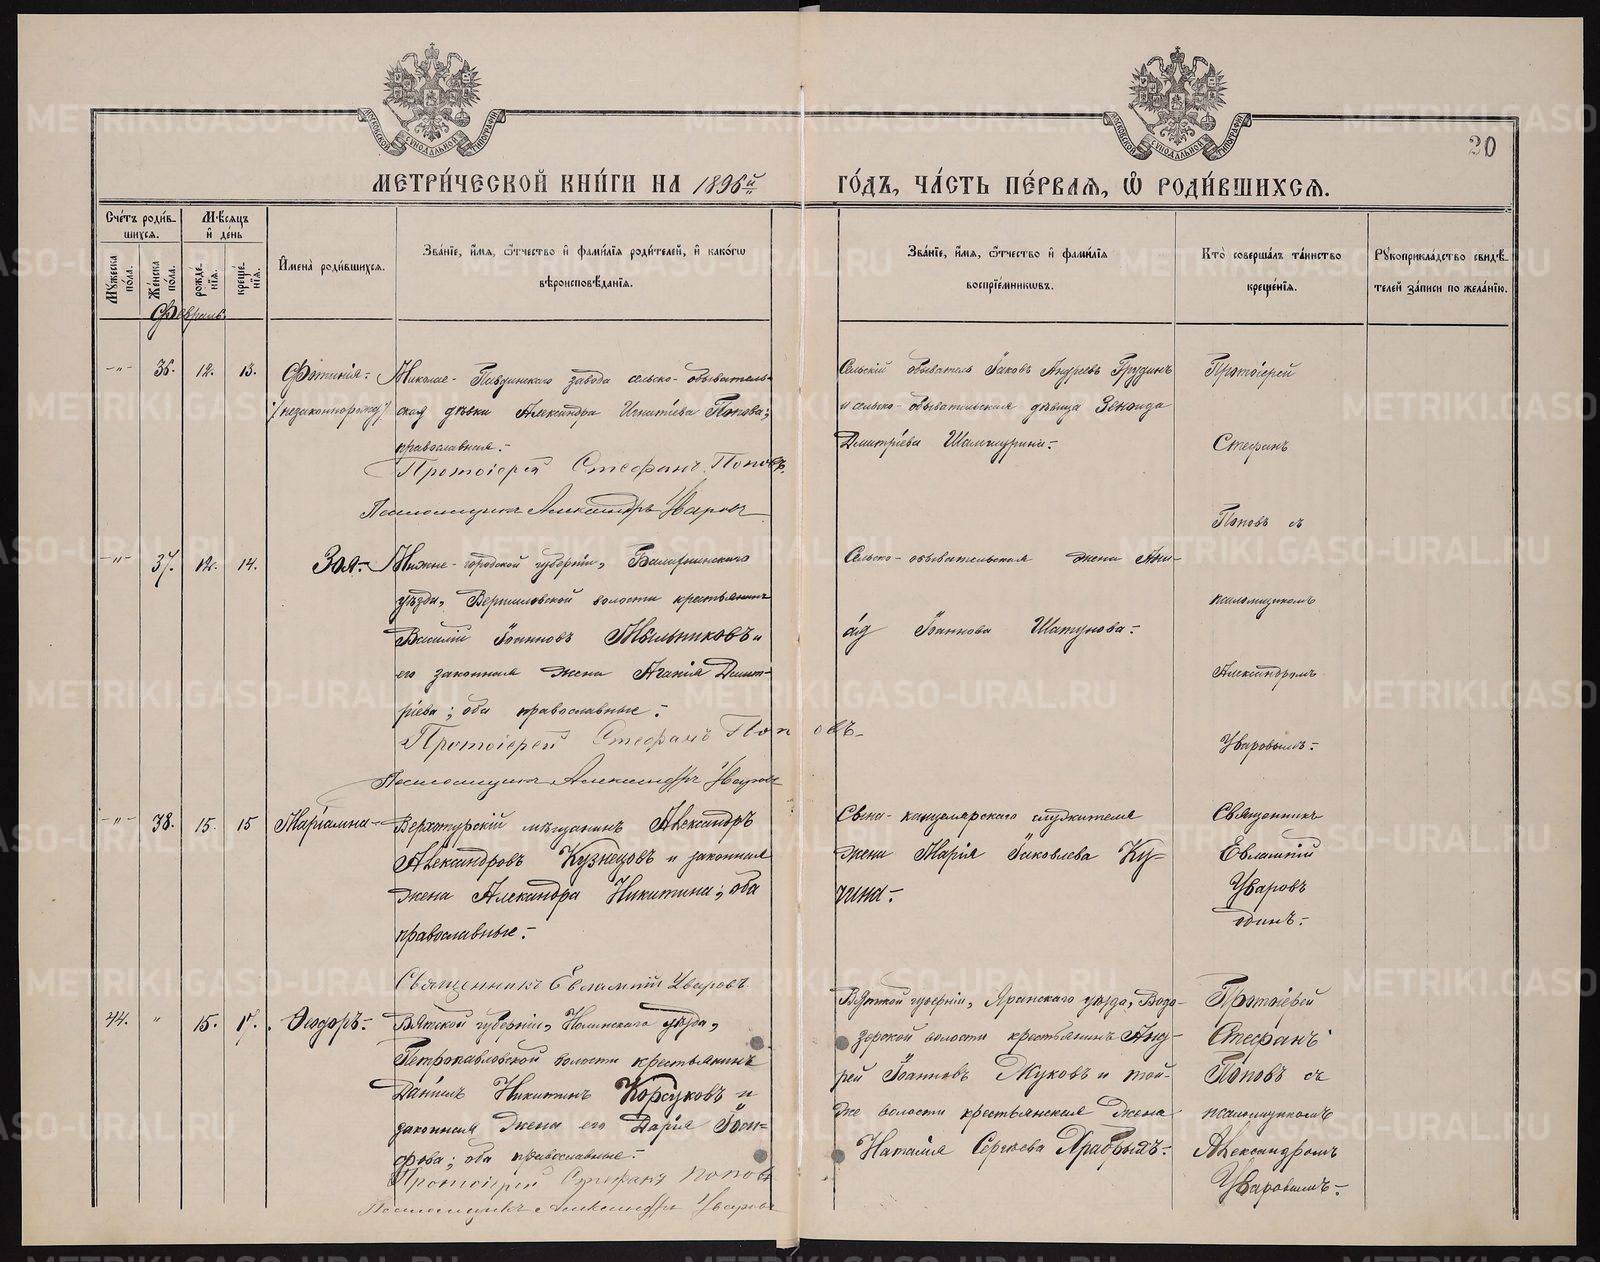 20
МЕТРИ́ЧЕСКОЙ КНИ́ГИ НА 1896й ГО́ДЪ, ЧА́СТЬ ПЕ́РВАѦ, Ѿ РОДИ́ВШИХСѦ.
Сче́тъ роди́в-
шихся.
Мѣсяцъ
и́ де́нь
Мꙋжеска по́ла.
Же́нска по́ла.
рожде́-
нїѧ.
креще́-
нїѧ.
И́мена̀ роди́вшихся.
Зва́нїе, и́мя, ѻ́тчество и́ фами́лїя роди́телей, и́ како́гѡ
вѣроисповѣ́данїя.
Зва́нїе, и́мя, ѻ́тчество и́ фами́лїя
воспрїе́мникѡвъ.
Кто̀ соверша́лъ та́инство
креще́нїя.
Рꙋкоприкла́дство свидѣ́-
телей за́писи по жела́нїю.
Февраль.
-"- 36. 12. 13. Фотинія.-
/незаконнорожд/
Николае-Павдинскаго завода сельско-обыватель-
ская дѣвка Александра Игнатіева Попова;
православная.-
Протоіерей Стефанъ Поповъ.
Псаломщикъ Александръ Уваровъ
Сельскій обыватель Іаковъ Андреевъ Грудинъ
и сельско-обывательская дѣвица Зенаида
Дмитріева
Протоіерей
Стефанъ
Поповъ съ
псаломщикомъ
Александромъ
Уваровымъ.-
-"- 37. 12. 14. Зоя.-
Нижне-городской губерніи, Балахнинскаго
уѣзда, волости крестьянинъ
Василій Іоанновъ Мельниковъ и
его законная жена Агапія Дмит-
ріева; оба православные.-
Протоіерей Стефанъ Поповъ.
Псаломщикъ Александръ Уваровъ
Сельско-обывательская жена
Іоаннова Шатунова.-
-"- 38. 15. 15 Маріамна-
Верхотурскій мѣщанинъ Александръ
Александровъ Кузнецовъ и законная
жена Александра Никитина; оба
православные.-
Священникъ Евлампій Уваровъ
канцелярскаго служителя
жена Марія Іаковлева Ку-
чина.-
Священникъ
Евлампій
Уваровъ
одинъ.-
44. " 15. 17. Ѳеодоръ.-
Вятской губерніи, Нолинскаго уѣзда,
Петропавловской волости крестьянинъ
Даніилъ Никитинъ Корсуковъ и
законная жена его Дарія Іоси-
фова; оба православные.-
Протоіерей Стефанъ Поповъ
Псаломщикъ Александръ Уваровъ
Вятской губерніи, Яранскаго уѣзда, Водо-
зерской волости крестьянинъ Анд-
рей Іоанновъ Жуковъ и той-
же волости крестьянская жена
Наталія Сергѣева Храбрыхъ.-
Протоіерей
Стефанъ
Поповъ съ
псаломщикомъ
Александромъ
Уваровымъ.-